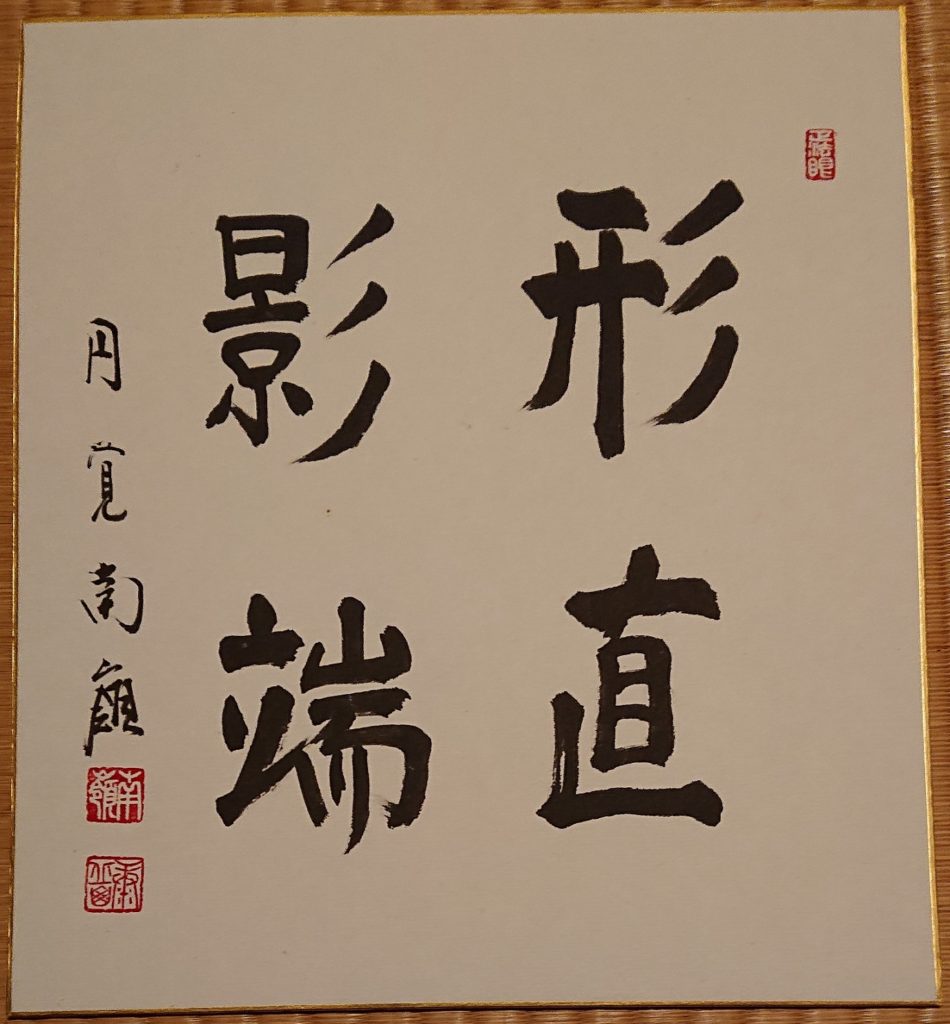 形直
影端
円覚南嶺
南嶺